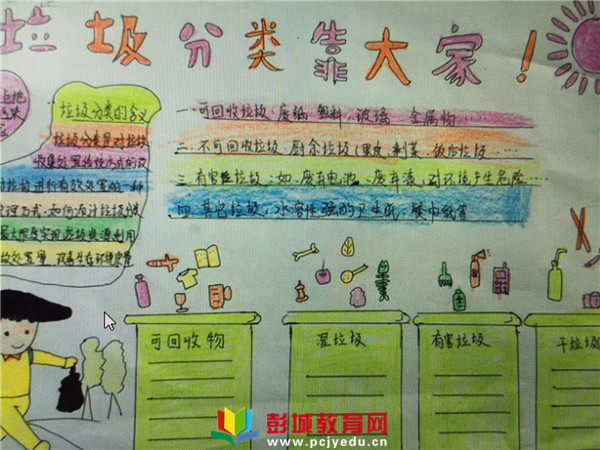 垃圾分类靠大家！
点把
垃圾分类的含义
垃圾分类是对垃圾
收集处置传统方式的改
垃圾进行有效处置的一种
管理方式。如何通过垃圾分类
最大限度实现垃圾资源利用
改善生存环境质量
一.可回收垃圾、废纸、塑料、玻璃、金属物……
二.不可回收垃圾、厨余垃圾（果皮、剩菜、饭后垃圾……
三.有害垃圾.如.废弃电池、废弃漆，对环境产生危险……
四.其它垃圾，水溶性强的卫生纸、餐巾纸等
可回收物
湿垃圾
有害垃圾
干垃圾
彭城教育网
www.pcjyedu.cn